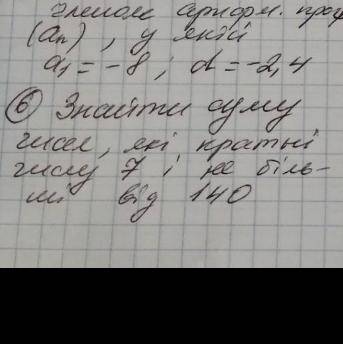 членом арифм. прог
(aₙ), у якій
a₁ = -8; d = -2,4
⑥ Знайти суму
чисел, які кратні
числу 7 і не біль-
ші від 140